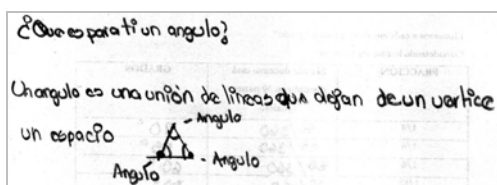 ¿Que es para ti un angulo?
Un angulo es una unión de lineas que dejan de un vertice
un espacio
Angulo
Angulo
Angulo
FRACCIÓN
GRADOS